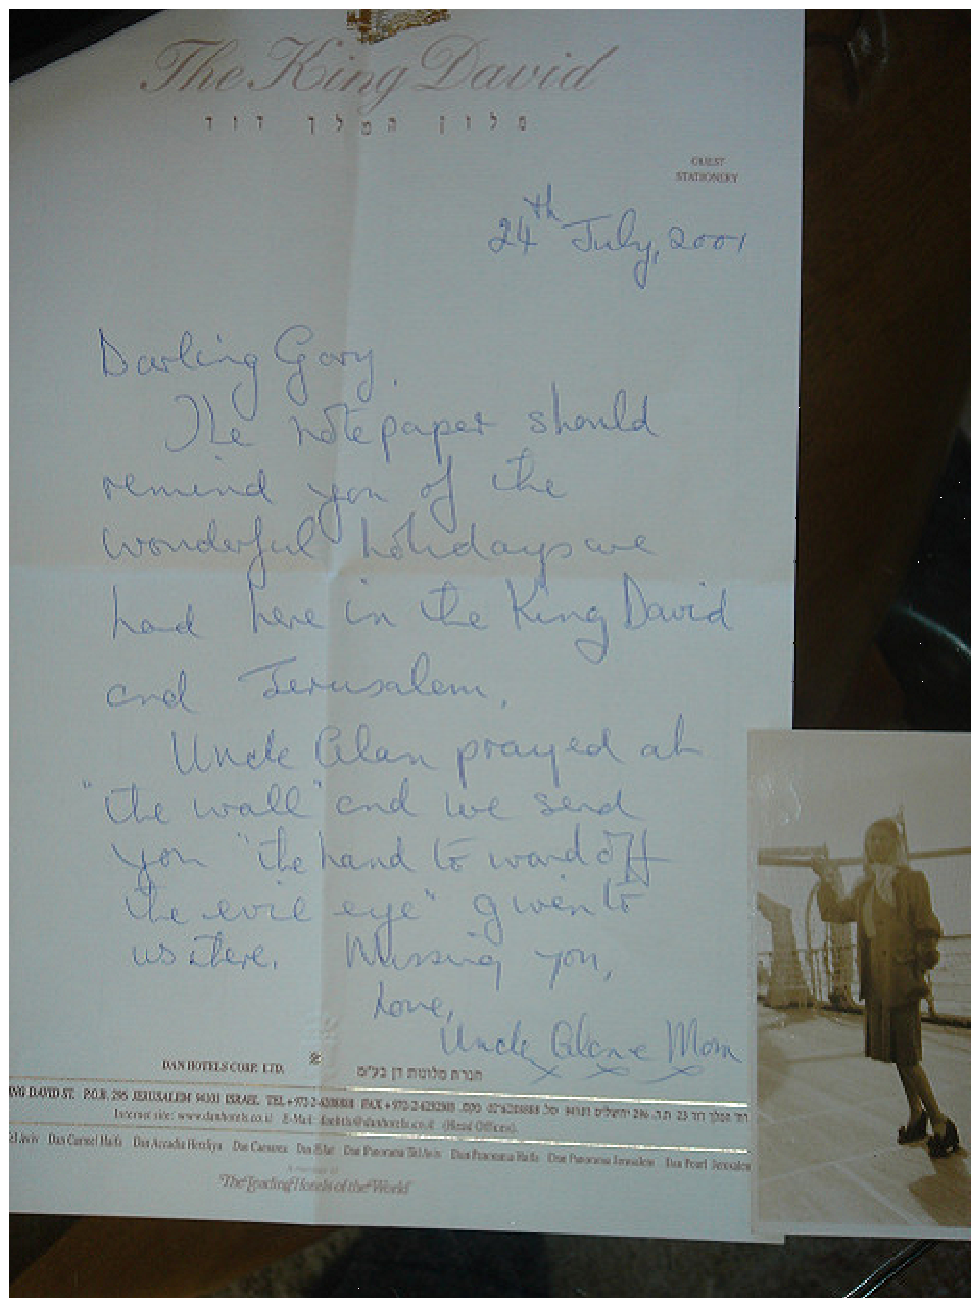 The King David
מלון המלך דוד
GUEST
STATIONERY
24th July, 2001
Darling Gary,
The notepaper should
remind you of the
wonderful holidays we
had here in the King David
and Jerusalem.
Uncle Alan prayed at
"the wall" and we send
you "the hand to ward off
the evil eye" given to
us there. Missing you,
Love,
Uncle Alan & Mom
x x x
DAN HOTELS CORP. LTD.
חברת מלונות דן בע"מ
KING DAVID ST. P.O.B. 295 JERUSALEM 94101 ISRAEL TEL +972-2-6208888 FAX +972-2-6232303
רח' המלך דוד 23 ת.ד. 295 ירושלים 94101
Internet site: www.danhotels.co.il E-Mail: (Head Offices).
Tel Aviv Dan Carmel Haifa Dan Accadia Herzliya Dan Caesarea Dan Eilat Dan Panorama Tel Aviv Dan Panorama Haifa Dan Panorama Jerusalem Dan Pearl Jerusalem
A member of
"The Leading Hotels of the World"